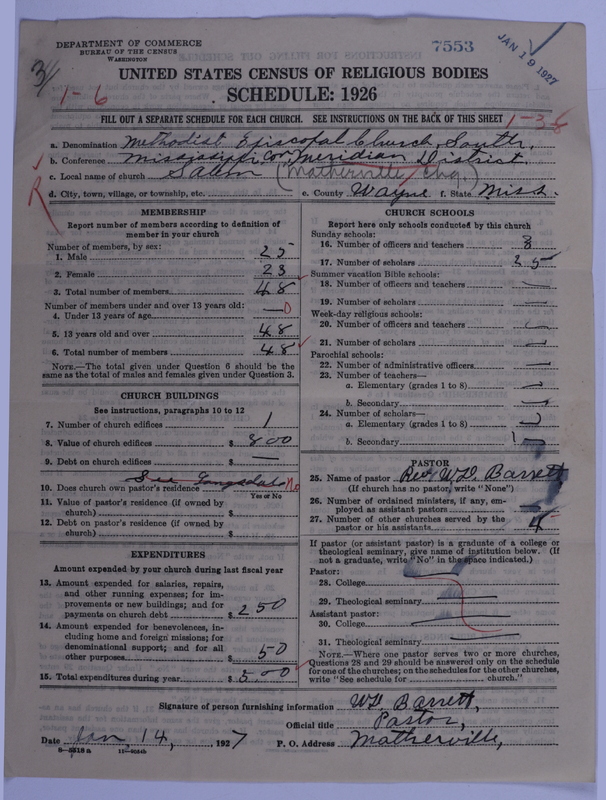 DEPARTMENT OF COMMERCE
BUREAU OF THE CENSUS
WASHINGTON
7553
JAN 19 1927
31
1-6
UNITED STATES CENSUS OF RELIGIOUS BODIES
SCHEDULE: 1926
FILL OUT A SEPARATE SCHEDULE FOR EACH CHURCH. SEE INSTRUCTIONS ON THE BACK OF THIS SHEET
1-38
a. Denomination Methodist Episcopal Church, South,
b. Conference Mississippi Con, Meridian District
c. Local name of church Salem (Matherville Chg.)
d. City, town, village, or township, etc. e. County Wayne f. State Miss.
R
MEMBERSHIP
Report number of members according to definition of member in your church
Number of members, by sex:
1. Male 25
2. Female 23
3. Total number of members 48
Number of members under and over 13 years old:
4. Under 13 years of age — 0
5. 13 years old and over 48
6. Total number of members 48
NOTE.—The total given under Question 6 should be the same as the total of males and females given under Question 3.
CHURCH BUILDINGS
See instructions, paragraphs 10 to 12
7. Number of church edifices 1
8. Value of church edifices $ 800
9. Debt on church edifices $ —
See Langsdale No
10. Does church own pastor's residence
Yes or No
11. Value of pastor's residence (if owned by church) $
12. Debt on pastor's residence (if owned by church) $
EXPENDITURES
Amount expended by your church during last fiscal year
13. Amount expended for salaries, repairs, and other running expenses; for improvements or new buildings; and for payments on church debt $ 250
14. Amount expended for benevolences, including home and foreign missions; for denominational support; and for all other purposes $ 50
15. Total expenditures during year $
CHURCH SCHOOLS
Report here only schools conducted by this church
Sunday schools:
16. Number of officers and teachers 8
17. Number of scholars 35
Summer vacation Bible schools:
18. Number of officers and teachers —
19. Number of scholars —
Week-day religious schools:
20. Number of officers and teachers —
21. Number of scholars —
Parochial schools:
22. Number of administrative officers —
23. Number of teachers—
a. Elementary (grades 1 to 8) —
b. Secondary —
24. Number of scholars—
a. Elementary (grades 1 to 8)
b. Secondary
PASTOR
25. Name of pastor Rev. W.D. Barrett
(If church has no pastor, write "None")
26. Number of ordained ministers, if any, employed as assistant pastors
27. Number of other churches served by the pastor or his assistants 4
If pastor (or assistant pastor) is a graduate of a college or theological seminary, give name of institution below. (If not a graduate, write "No" in the space indicated.)
Pastor:
28. College
29. Theological seminary
Assistant pastor:
30. College
31. Theological seminary
NOTE.—Where one pastor serves two or more churches, Questions 28 and 29 should be answered only on the schedule for one of the churches; on the schedules for the other churches, write "See schedule for church."
Signature of person furnishing information W.D. Barrett,
Official title Pastor,
Date Jan, 14, , 1927 P. O. Address Matherville,